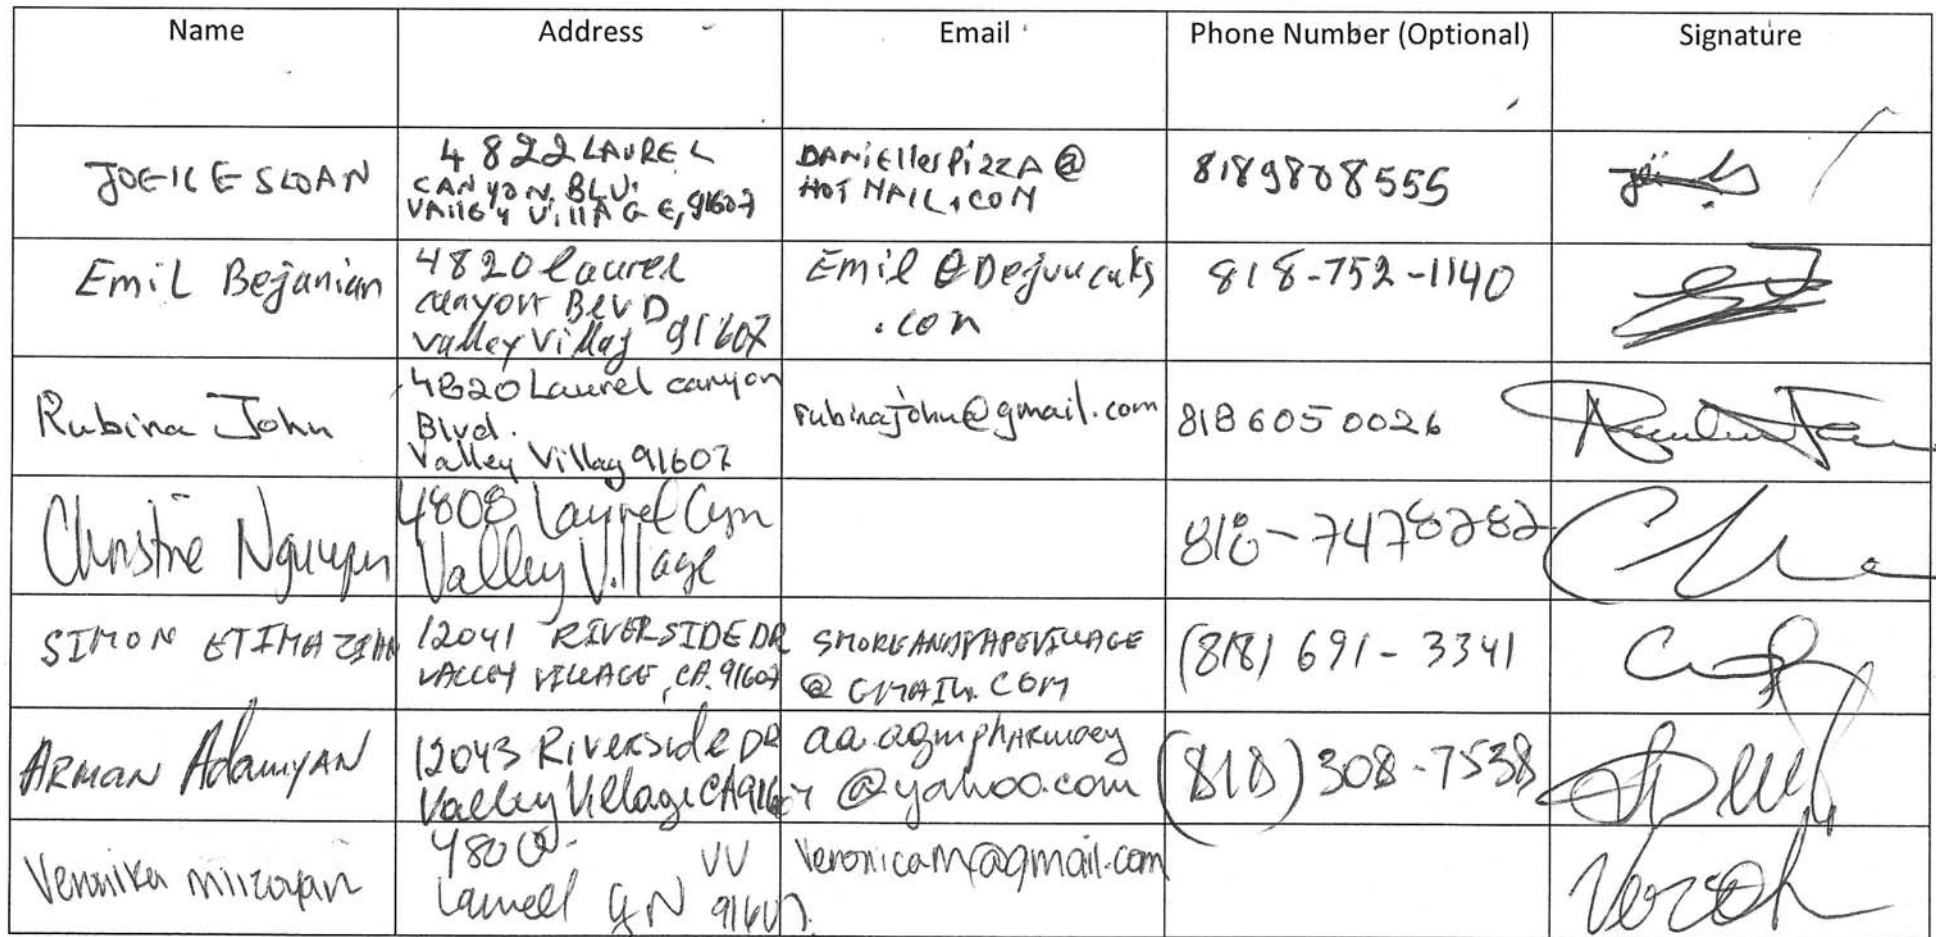 Name Address Email Phone Number (Optional) Signature
JOEILE SLOAN
4822 LAUREL
CANYON, BLV.
VAllEY VillAGE, 91607
DANiEllesPizzA@
HOTMAIL.COM
8189808555
Emil Bejanian
4820 laurel
canyon BlVD
valley Villag 91607
Emil @
.com
818-752-1140
Rubina John
4820 Laurel canyon
Blvd.
Valley Villag 91607
rubinajohn@gmail.com
8186050026
Christie Nguyen
4808 Laurel Cyn
Valley Village
818-7478282
SIMON ETIMAZIAN
12041 RIVERSIDE DR
VALLEY VILLAGE, CA. 91607
SMOKEANDVAPEVILLAGE
@ GMAIL. COM
(818) 691-3341
ARMAN AdamyAN
12043 Riverside DR
Valley Village CA 91607
aa.agmphARmacy
@yahoo.com
(818) 308-7538
4800
VV
Laurell 91607.
Veronicam@gmail.com